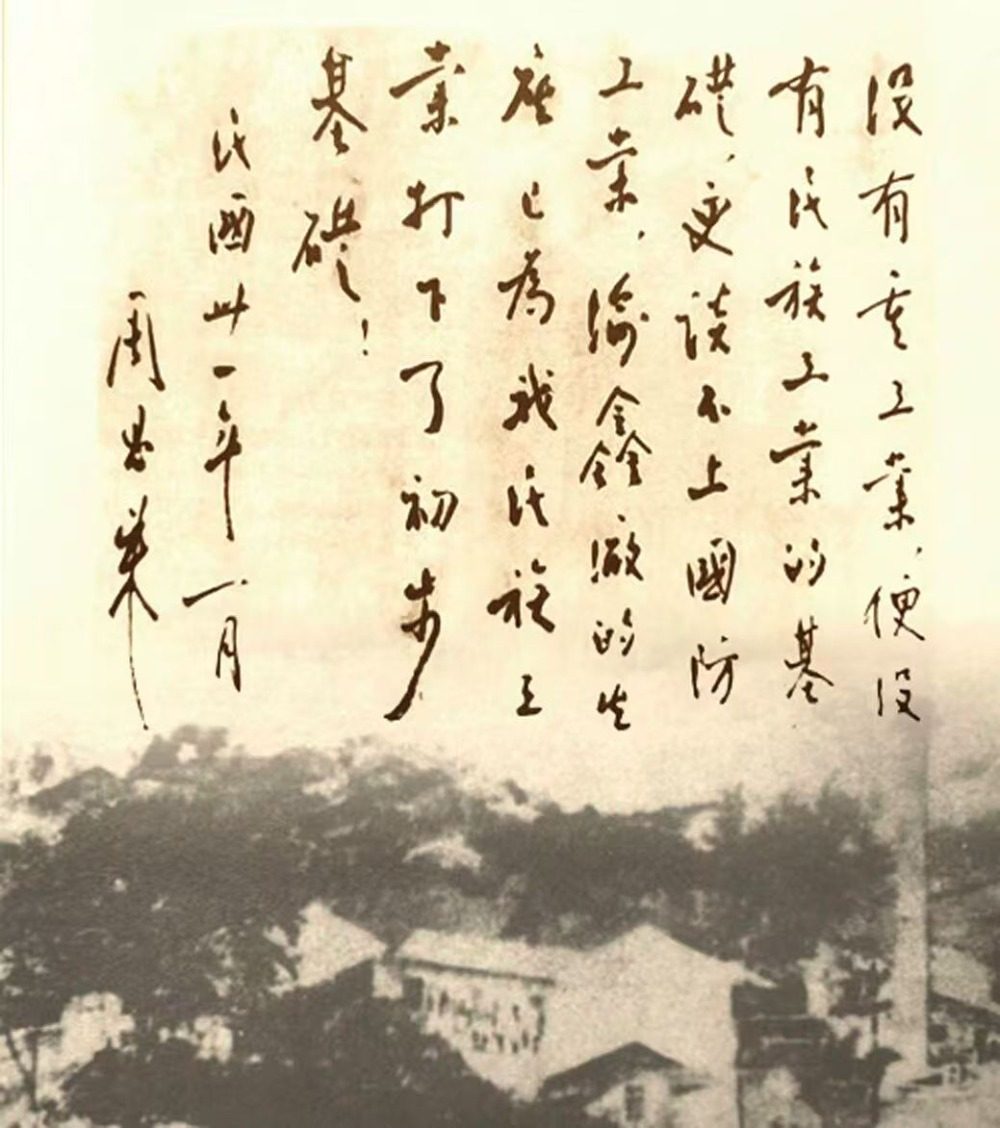 没有重工业，便没
有民族工业的基
礎，更談不上國防
工业，渝鑫廠的生
產已為我民族工
业打下了初步
基礎！
民國卅一年一月
周恩来